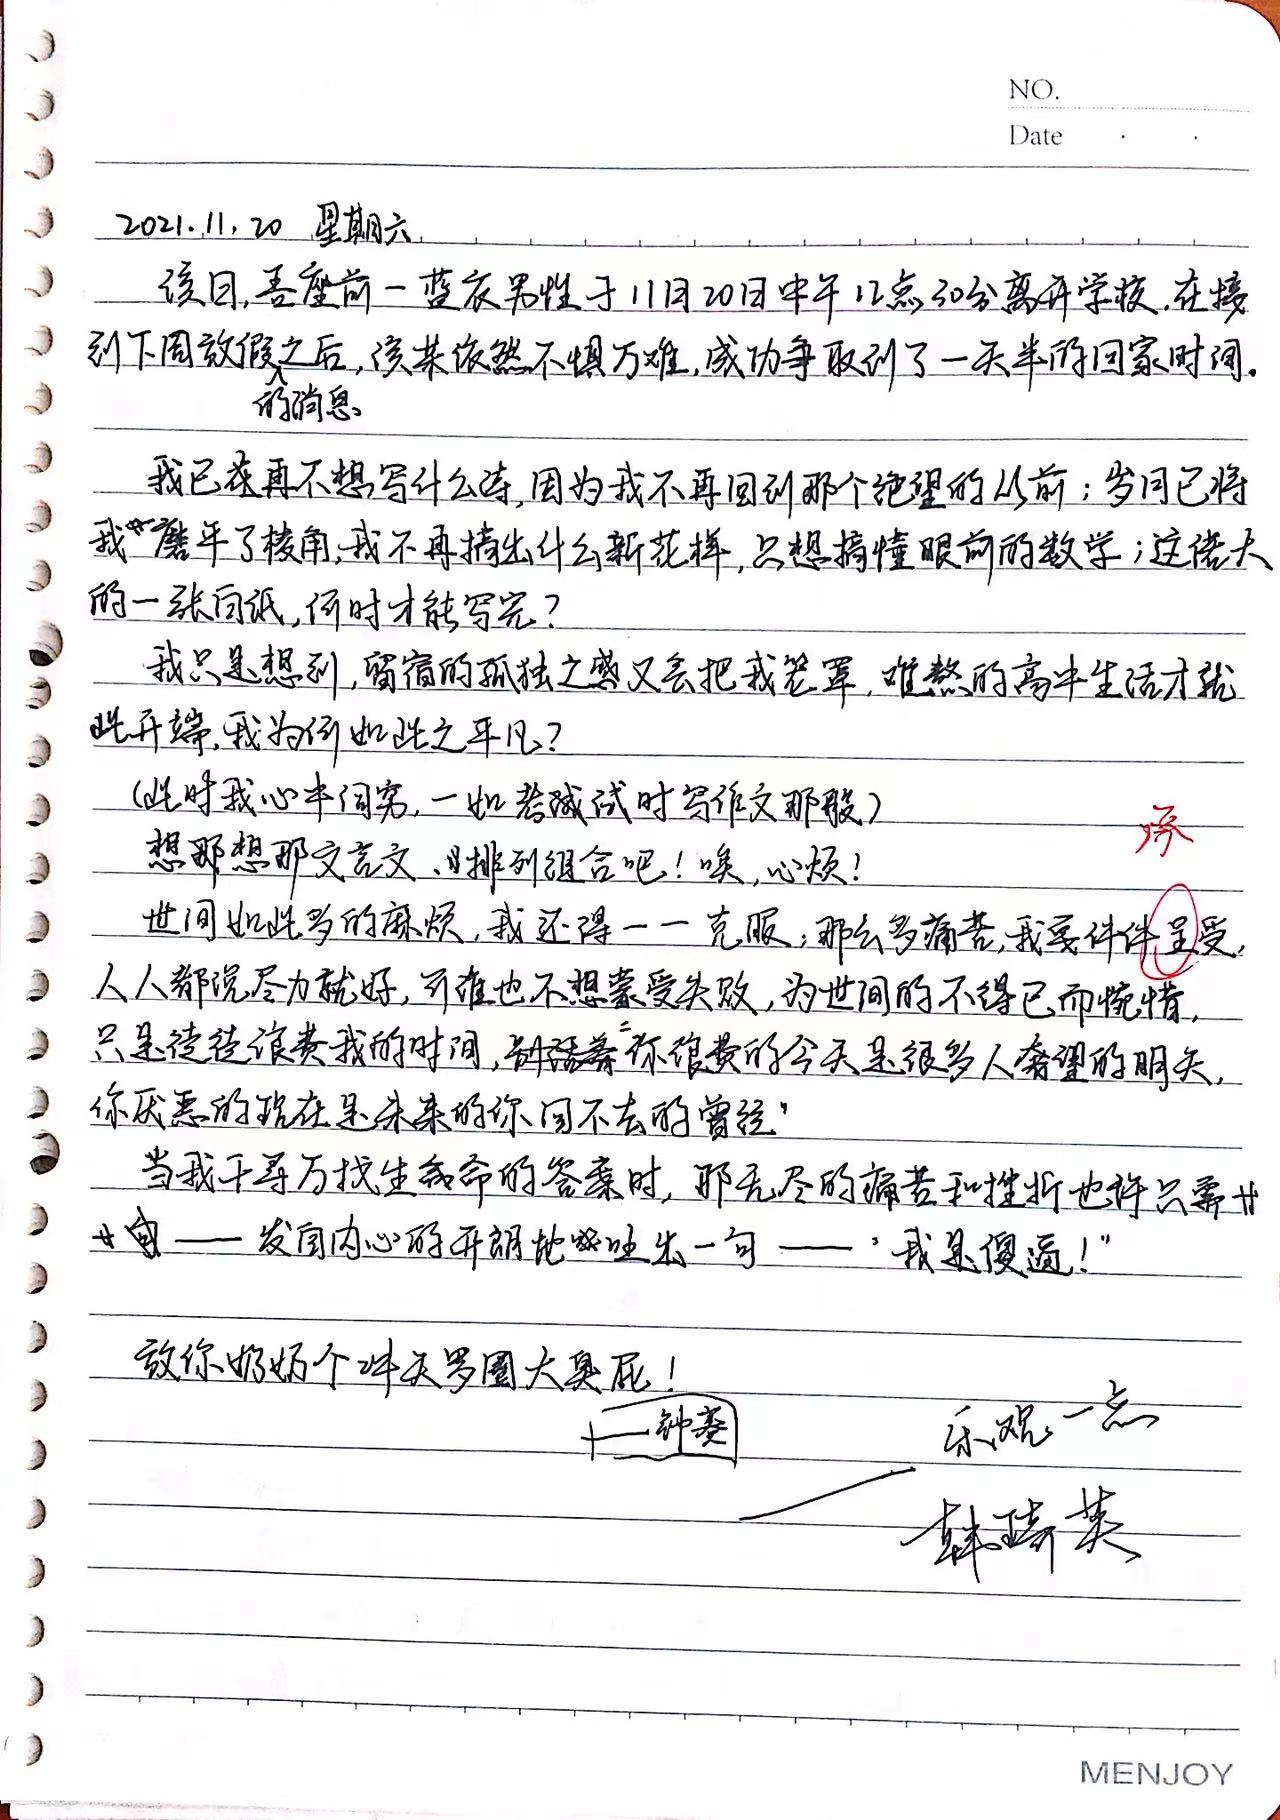 NO.
Date
2021.11.20 星期六
该日,吾座前一蓝衣男性于11月20日中午12点30分离开学校.在接
到下周放假之后,该某依然不惧万难,成功争取到了一天半的回家时间.
的消息
我已再不想写什么诗,因为我不再回到那个绝望的以前;岁月已将
我磨平了棱角,我不再搞出什么新花样,只想搞懂眼前的数学;这偌大
的一张白纸,何时才能写完?
我只是想到,留宿的孤独之感又会把我笼罩,难熬的高中生活才就
此开端,我为何如此之平凡?
(此时我心中词穷,一如考试时写作文那般)
承
想那想那文言文、排列组合吧!唉,心烦!
世间如此多的麻烦,我还得一一克服;那么多痛苦,我要件件呈受,
人人都说尽力就好,可谁也不想蒙受失败,为世间的不得已而惋惜,
只是徒徒浪费我的时间,"你浪费的今天是很多人奢望的明天,
你厌恶的现在是未来的你回不去的曾经"
当我千寻万找生命的答案时,那无尽的痛苦和挫折也许只需
——发自内心的开朗地吐出一句——"我是傻逼!"
放你奶奶个冲天罗圈大臭屁!
——钟葵
乐观一点
韩琦英
MENJOY